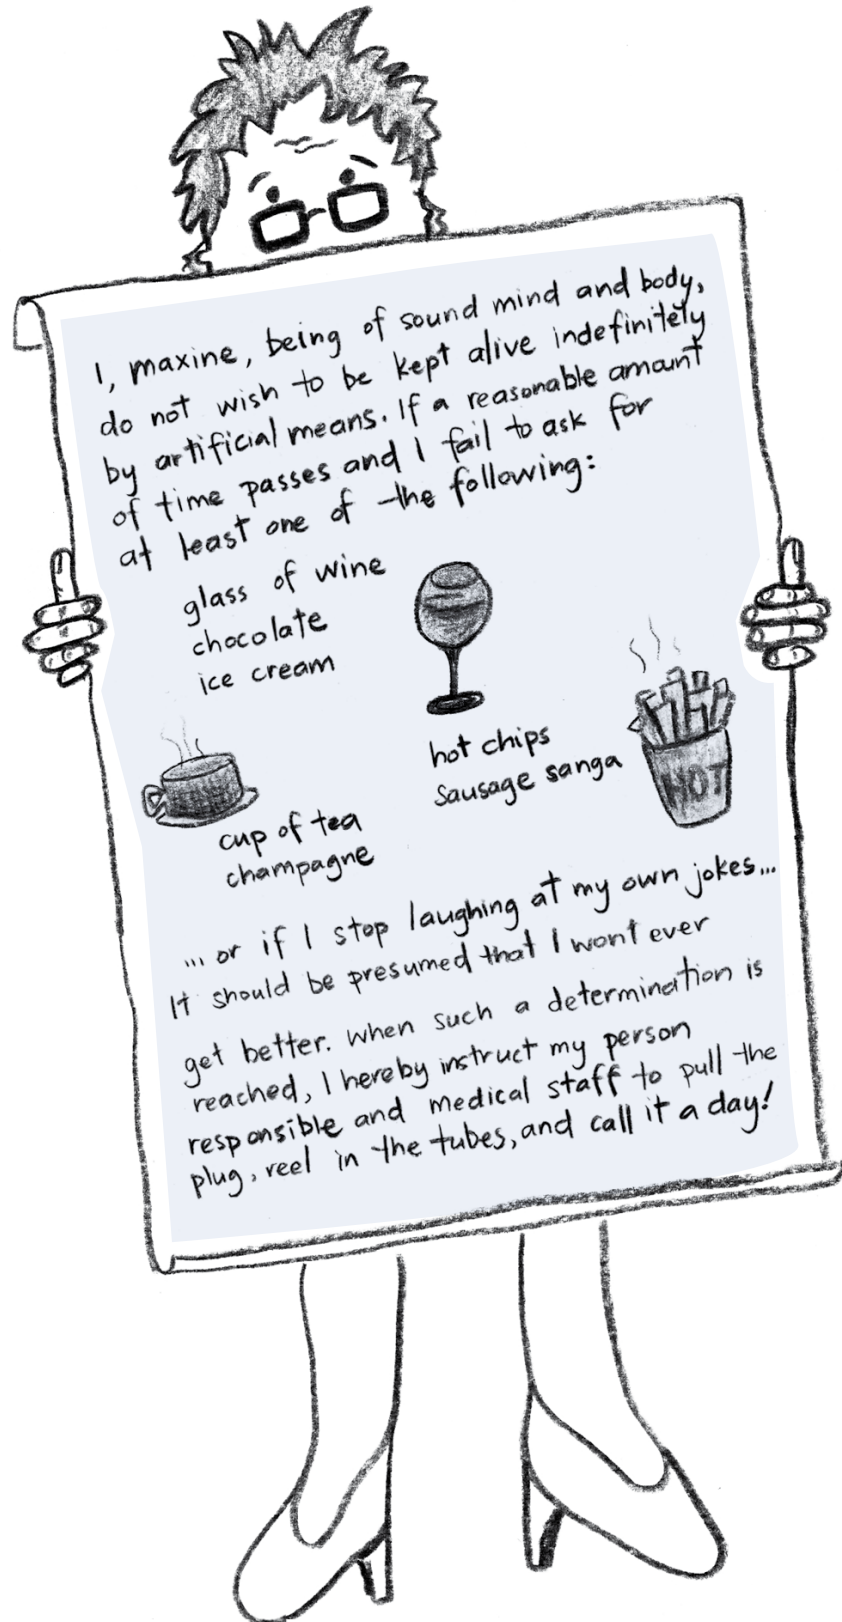 I, maxine, being of sound mind and body,
do not wish to be kept alive indefinitely
by artificial means. If a reasonable amount
of time passes and I fail to ask for
at least one of the following:
glass of wine
chocolate
ice cream
hot chips
Sausage sanga
HOT
cup of tea
champagne
... or if I stop laughing at my own jokes...
It should be presumed that I wont ever
get better. When such a determination is
reached, I hereby instruct my person
responsible and medical staff to pull the
plug, reel in the tubes, and call it a day!